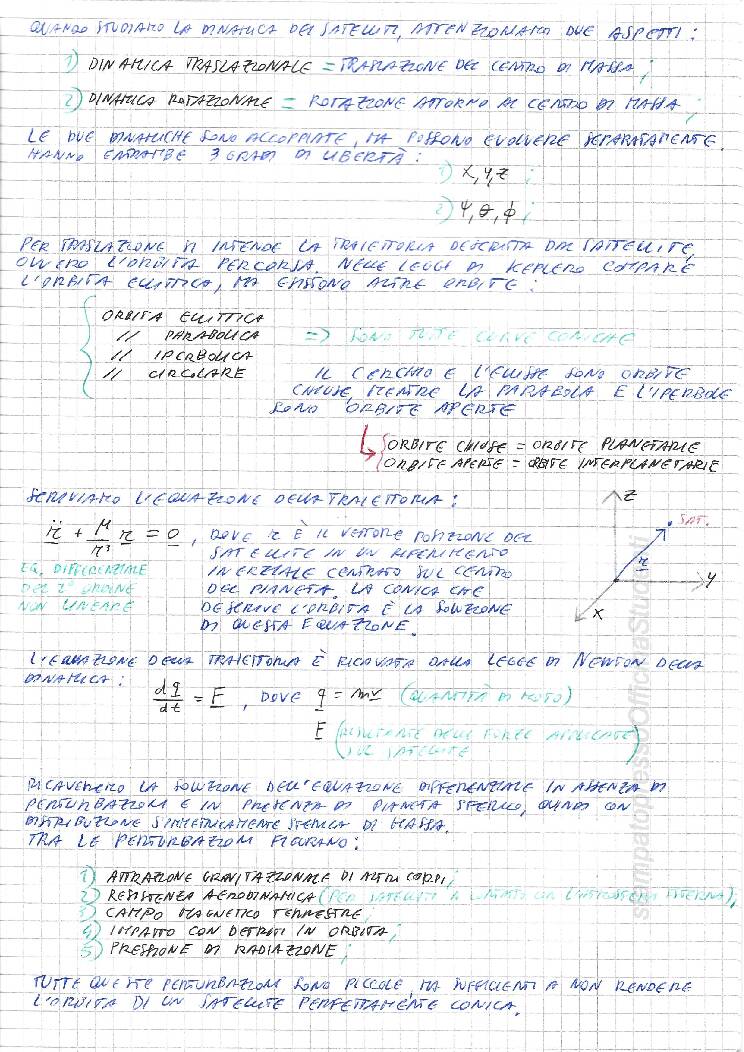 QUANDO STUDIAMO LA DINAMICA DEI SATELLITI, ATTENZIONIAMO DUE ASPETTI:
1) DINAMICA TRASLAZIONALE = TRASLAZIONE DEL CENTRO DI MASSA;
2) DINAMICA ROTAZIONALE = ROTAZIONE ATTORNO AL CENTRO DI MASSA;
LE DUE DINAMICHE SONO ACCOPPIATE, MA POSSONO EVOLVERE SEPARATAMENTE.
HANNO ENTRAMBE 3 GRADI DI LIBERTÀ:
1) X, Y, Z;
2) Ψ, θ, ϕ;
PER TRASLAZIONE SI INTENDE LA TRAIETTORIA DESCRITTA DAL SATELLITE,
OVVERO L'ORBITA PERCORSA. NELLE LEGGI DI KEPLERO COMPARE
L'ORBITA ELLITTICA, MA ESISTONO ALTRE ORBITE:
ORBITA ELLITTICA
// PARABOLICA => SONO TUTTE CURVE CONICHE
// IPERBOLICA
// CIRCOLARE
IL CERCHIO E L'ELLISSE SONO ORBITE
CHIUSE, MENTRE LA PARABOLA E L'IPERBOLE
SONO ORBITE APERTE
ORBITE CHIUSE = ORBITE PLANETARIE
ORBITE APERTE = ORBITE INTERPLANETARIE
SCRIVIAMO L'EQUAZIONE DELLA TRAIETTORIA:
r̈ + μ/r³ r = 0, DOVE r È IL VETTORE POSIZIONE DEL
SATELLITE IN UN RIFERIMENTO
INERZIALE CENTRATO SUL CENTRO
DEL PIANETA. LA CONICA CHE
DESCRIVE L'ORBITA È LA SOLUZIONE
DI QUESTA EQUAZIONE.
EQ. DIFFERENZIALE
DEL 2° ORDINE
NON LINEARE
Z
SAT.
r
Y
X
L'EQUAZIONE DELLA TRAIETTORIA È RICAVATA DALLA LEGGE DI NEWTON DELLA
DINAMICA:
dq/dt = F, DOVE q = mv (QUANTITÀ DI MOTO)
F (RISULTANTE DELLE FORZE APPLICATE
SUL SATELLITE)
RICAVEREMO LA SOLUZIONE DELL'EQUAZIONE DIFFERENZIALE IN ASSENZA DI
PERTURBAZIONI E IN PRESENZA DI PIANETA SFERICO, QUINDI CON
DISTRIBUZIONE SIMMETRICAMENTE SFERICA DI MASSA.
TRA LE PERTURBAZIONI FIGURANO:
1) ATTRAZIONE GRAVITAZIONALE DI ALTRI CORPI;
2) RESISTENZA AERODINAMICA (PER SATELLITI A CONTATTO CON L'ATMOSFERA ESTERNA);
3) CAMPO MAGNETICO TERRESTRE;
4) IMPATTO CON DETRITI IN ORBITA;
5) PRESSIONE DI RADIAZIONE;
TUTTE QUESTE PERTURBAZIONI SONO PICCOLE, MA SUFFICIENTI A NON RENDERE
L'ORBITA DI UN SATELLITE PERFETTAMENTE CONICA.
stampatopressoOfficinaStudenti